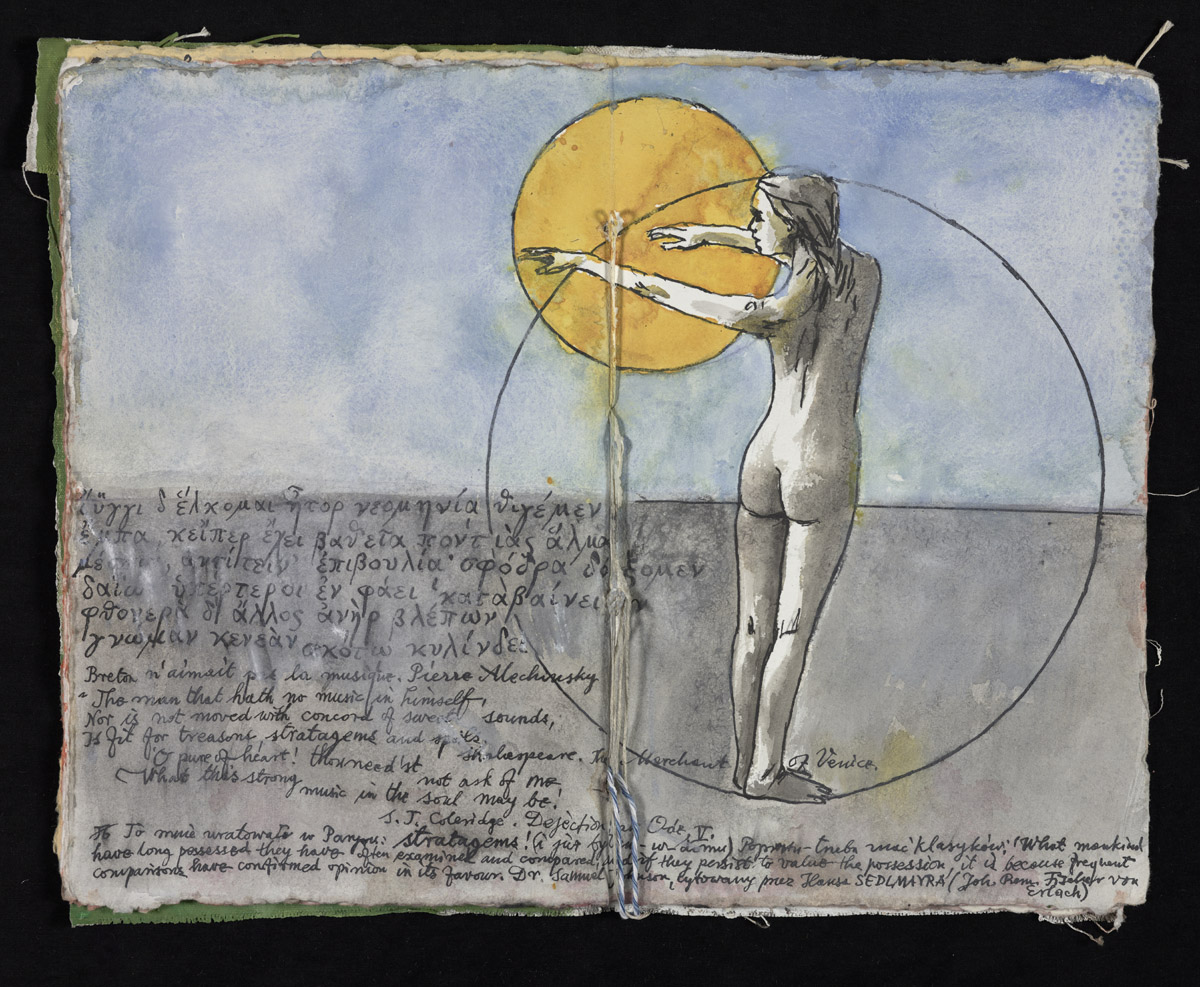 ἴϋγγι δ' ἕλκομαι ἦτορ νεομηνία θιγέμεν
ἔμπα, κείπερ ἔχει βαθεῖα ποντιὰς ἅλμα
ἀντίτειν' ἐπιβουλία· σφόδρα δόξομεν
δαΐων ὑπέρτεροι ἐν φάει καταβαίνειν
φθονερὰ δ' ἄλλος ἀνὴρ βλέπων
γνώμαν κενεὰν σκότῳ κυλίνδει
Breton n'aimait pas la musique. Pierre Alechinsky
"The man that hath no music in himself,
Nor is not moved with concord of sweet sounds,
Is fit for treasons, stratagems and spoils.
Shakespeare. The Merchant of Venice.
O pure of heart! thou need'st not ask of me
What this strong music in the soul may be!
S.T. Coleridge. Dejection: an Ode, V.
To mnie uratowało w Paryżu: stratagems! (i już w domu) Poprostu trzeba znać klasyków: "What mankind
have long possessed they have often examined and compared, and if they persist to value the possession, it is because frequent
comparisons have confirmed opinion in its favour. Dr. Samuel Johnson, cytowany przez Hansa SEDLMAYRA (Joh. Bern. Fischer von
Erlach)